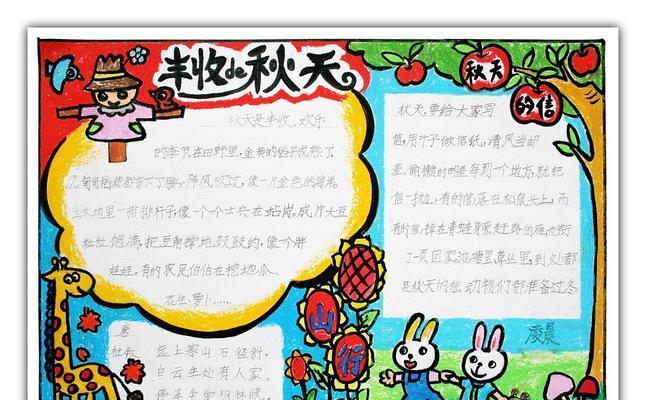 丰收de秋天
秋天是丰收、欢乐
的季节,在田野里,金黄的稻子成熟了,
沉甸甸稻穗都弯下了腰,一阵风吹过,像一片金色的海洋。
玉米地里一排排秆子,像一个个士兵在站岗。成片大豆
粒粒饱满,把豆荚撑地鼓鼓的,像个胖
娃娃。有的农民伯伯在挖地瓜、
花生、萝卜……
秋天
的信
秋天,要给大家写
信,用叶子做信纸,清风当邮
差,偷懒的 每到一个地方,就把
信一扔,有的信落在松鼠头上,而
有的信掉在青蛙身 赶路的雁也衔
了一页回 池塘里,草丛里,到处都
是秋天的信,动物们都准备过冬
凌晨
山
行
唐
杜牧
远上寒山石径斜,
白云生处有人家。
停车坐爱枫林晚,